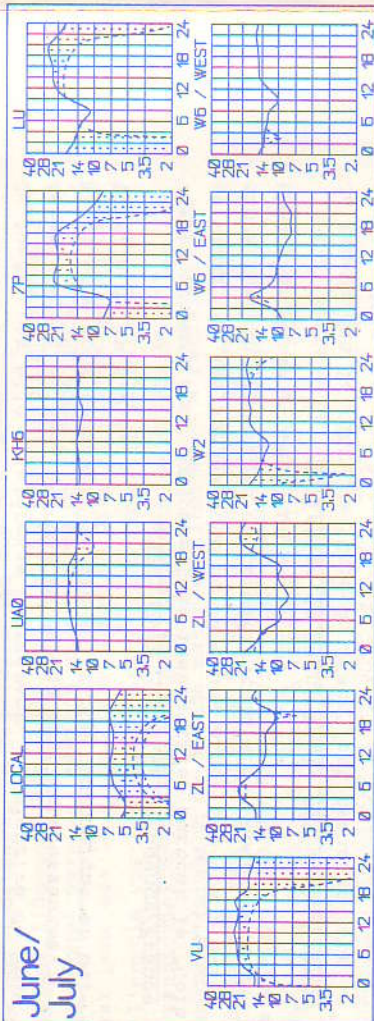 June/
July
LOCAL
40
28
21
14
10
7
5
3.5
2
0 6 12 18 24
UA0
40
28
21
14
10
7
5
3.5
2
0 6 12 18 24
KH6
40
28
21
14
10
7
5
3.5
2
0 6 12 18 24
7P
40
28
21
14
10
7
5
3.5
2
0 6 12 18 24
LU
40
28
21
14
10
7
5
3.5
2
0 6 12 18 24
VU
40
28
21
14
10
7
5
3.5
2
0 6 12 18 24
ZL / EAST
40
28
21
14
10
7
5
3.5
2
0 6 12 18 24
ZL / WEST
40
28
21
14
10
7
5
3.5
2
0 6 12 18 24
W2
40
28
21
14
10
7
5
3.5
2
0 6 12 18 24
W6 / EAST
40
28
21
14
10
7
5
3.5
2
0 6 12 18 24
W6 / WEST
40
28
21
14
10
7
5
3.5
2.
0 6 12 18 24